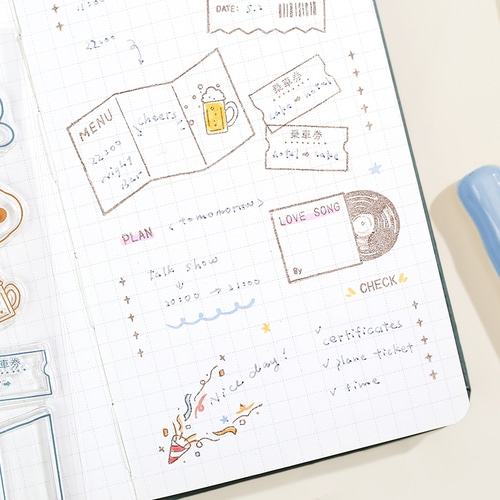 DATE: 5.2
22:00
MENU
cheers
22:00
night
Bar
乗車券
cake → hotel
乗車券
hotel → cake
PLAN < tomorrow >
talk show
↓
20:00 → 21:00
LOVE SONG
By
CHECK
✓ certificates
✓ plane ticket
✓ time
Nice day!
車券